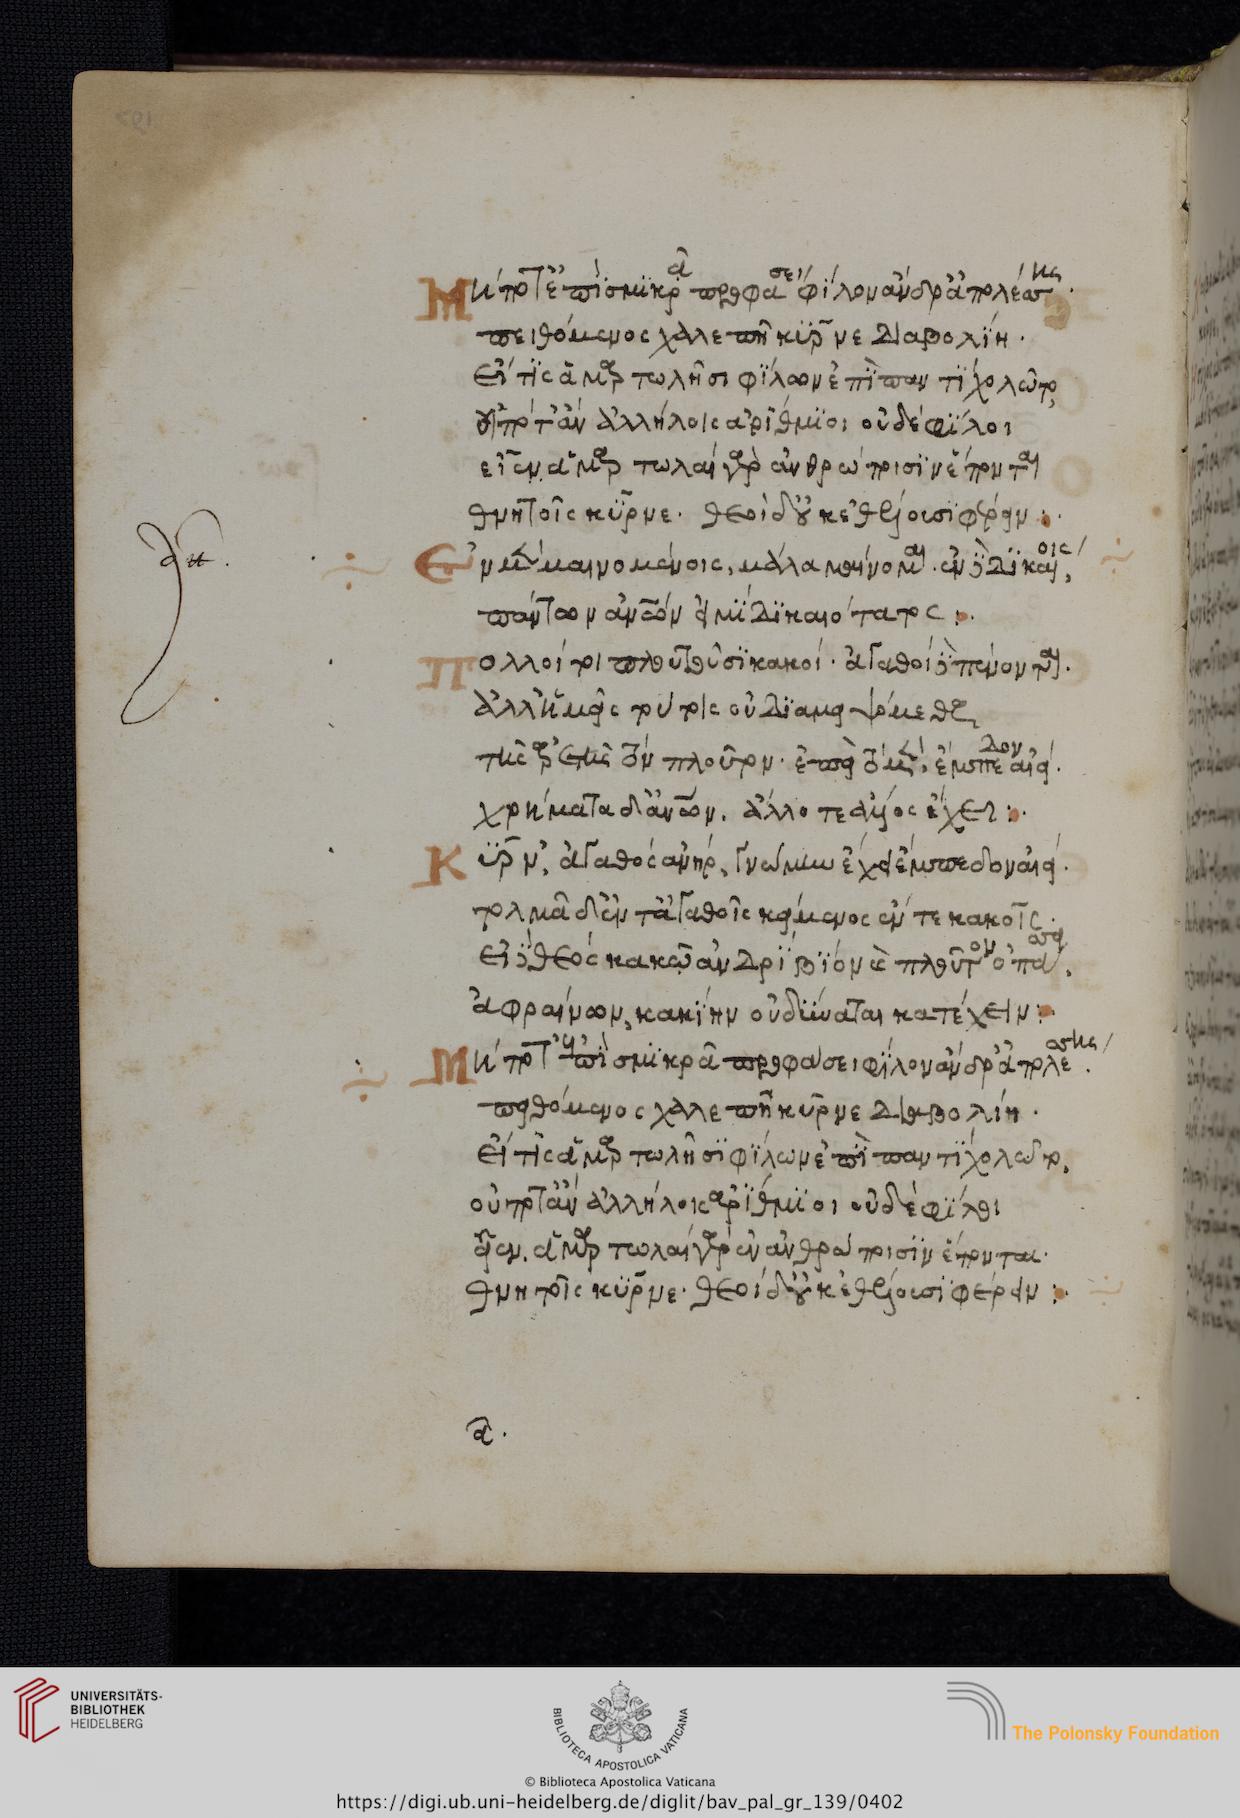 Μήποτ' ἐπὶ σμικρᾶ προφάσει φίλον ἄνδρ' ἀπολέσσης.
πειθόμενος χαλεπῆ κῦρνε διαβολίη.
εἴ τις ἁμαρτωλῆσι φίλων ἐπὶ παντὶ χολῶτο,
οὔποτ' ἂν ἀλλήλοις ἄρθμιοι οὐδὲ φίλοι
εἶεν. ἁμαρτωλαὶ γὰρ ἀνθρώποισιν ἕπονται
θνητοῖς κῦρνε. θεοὶ δ' οὐκ ἐθέλουσι φέρειν :
Ἐν μὲν μαινομένοις, μάλα μαίνομαι. ἐν δὲ δικαίοις,
πάντων ἀνθρώπων εἰμὶ δικαιότατος :
δη.
Πολλοί τοι πλουτοῦσι κακοί. ἀγαθοὶ δὲ πένονται.
ἀλλ' ἡμεῖς τούτοις οὐ διαμειψόμεθα
τῆς ἀρετῆς τὸν πλοῦτον. ἐπεὶ τὸ μὲν ἔμπεδον αἰεί.
χρήματα δ' ἀνθρώπων. ἄλλοτε ἄλλος ἔχει :
Κύρν', ἀγαθὸς ἀνὴρ, γνώμην ἔχει ἔμπεδον αἰεί.
τολμᾶ δ' ἔν τ' ἀγαθοῖς κείμενος ἔν τε κακοῖς.
εἰ δὲ θεὸς κακῶ ἀνδρὶ βίον καὶ πλοῦτον ὀπάσσει,
ἀφραίνων, κακίην οὐ δύναται κατέχειν :
Μήποτ' ἐπὶ σμικρᾶ προφάσει φίλον ἄνδρ' ἀπολέσσης.
πειθόμενος χαλεπῆ κῦρνε διαβολίη.
εἴ τις ἁμαρτωλῆσι φίλων ἐπὶ παντὶ χολῶτο,
οὔποτ' ἂν ἀλλήλοις ἄρθμιοι οὐδὲ φίλοι
εἶεν. ἁμαρτωλαὶ γὰρ ἐν ἀνθρώποισιν ἕπονται.
θνητοῖς κῦρνε. θεοὶ δ' οὐκ ἐθέλουσι φέρειν :
UNIVERSITÄTS-
BIBLIOTHEK
HEIDELBERG
BIBLIOTECA APOSTOLICA VATICANA
The Polonsky Foundation
© Biblioteca Apostolica Vaticana
https://digi.ub.uni-heidelberg.de/diglit/bav_pal_gr_139/0402